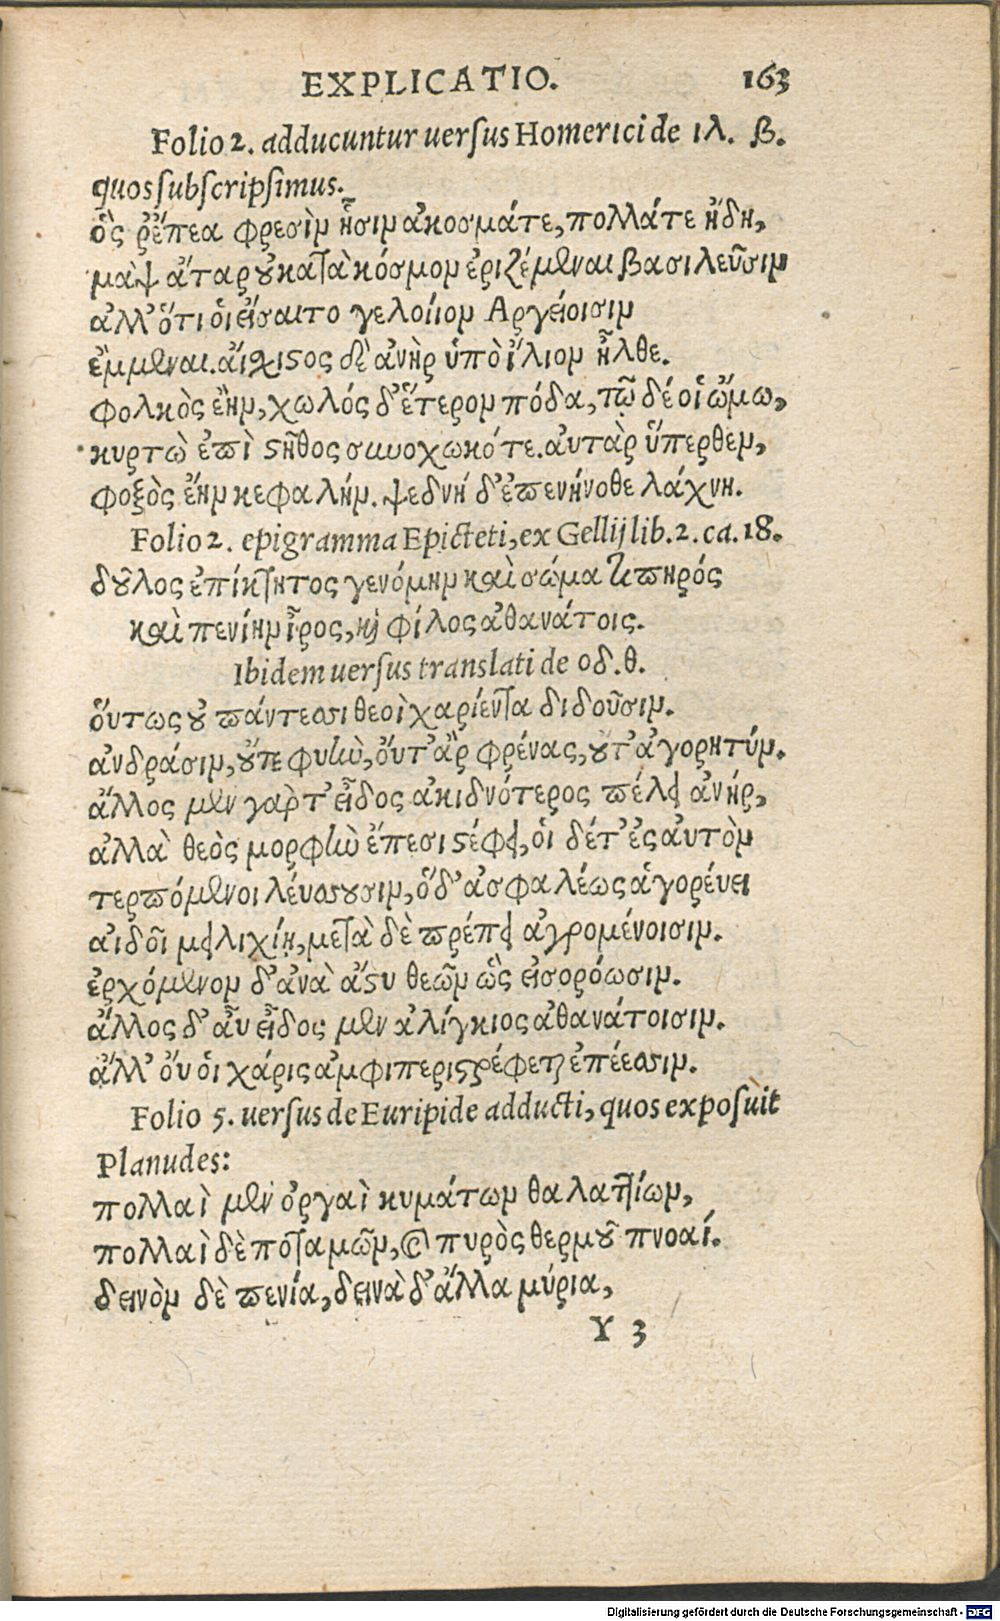 EXPLICATIO. 163
Folio 2. adducuntur uersus Homerici de ιλ. β.
quos subscripsimus.
ὃς ῥ̓ έ̓πεα φρεσὶν ᾗσιν ἀκοσμάτε, πολλάτε ἤδη,
μὰψ ἄταρ οὐ κατὰ κόσμον ἐριζέμεναι βασιλεῦσιν
ἀλλ' ὅτι οἱ εἴσαιτο γελοίϊον Ἀργείοισιν
ἔμμεναι. αἴσχιστος δὲ ἀνὴρ ὑπὸ ἴλιον ἦλθε.
φολκὸς ἔην, χωλός δ' ἕτερον πόδα, τῶ δέ οἱ ὤμω,
κυρτὼ ἐπὶ στῆθος συνοχωκότε. αὐτὰρ ὕπερθεν,
φοξὸς ἔην κεφαλήν. ψεδνή δ' ἐπενήνοθε λάχνη.
Folio 2. epigramma Epicteti, ex Gellij lib. 2. ca. 18.
δοῦλος ἐπίκτητος γενόμην καὶ σώμα τι πηρός
καὶ πενίην ἶρος, καὶ φίλος ἀθανάτοις.
Ibidem uersus translati de οδ. θ.
ὅυτως οὐ πάντεσσι θεοὶ χαρίεντα διδοῦσιν.
ἀνδράσιν, οὔτε φυὴν, ὀύτ' ἂρ φρένας, οὔτ' ἀγορητύν.
ἄλλος μὲν γὰρ τ' εἶδος ἀκιδνότερος πέλει ἀνήρ,
ἀλλὰ θεὸς μορφὴν ἔπεσι στέφει, ὁι δέτ' ἐς ἀυτὸν
τερπόμενοι λέυσσουσιν, ὅδ' ἀσφαλέως ἀγορέυει
αἰδοῖ μειλιχίῃ, μετὰ δὲ πρέπει ἀγρομένοισιν.
ἐρχόμενον δ' ἀνὰ ἄστυ θεῶν ὣς εἰσορόωσιν.
ἄλλος δ' ἀῦ εἶδος μὲν ἀλίγκιος ἀθανάτοισιν.
ἀλλ' ὀύ οἱ χάρις ἀμφιπεριστρέφεται ἐπέεσσιν.
Folio 5. uersus de Euripide adducti, quos exposuit
Planudes:
πολλαὶ μὲν ὀργαὶ κυμάτων θαλαττίων,
πολλαὶ δὲ ποταμῶν, καὶ πυρὸς θερμοῦ πνοαί.
δεινὸν δὲ πενία, δεινὰ δ' ἄλλα μύρια,
Y 3
Digitalisierung gefördert durch die Deutsche Forschungsgemeinschaft - DFG